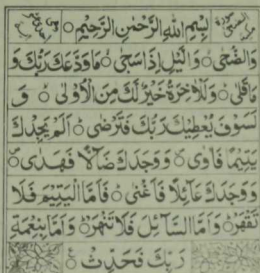 بِسْمِ اللهِ الرَّحْمٰنِ الرَّحِيْمِ
وَالضُّحٰى وَالَّيْلِ اِذَا سَجٰى مَا وَدَّعَكَ رَبُّكَ وَ
مَا قَلٰى وَلَلْاٰخِرَةُ خَيْرٌ لَّكَ مِنَ الْاُوْلٰى وَ
لَسَوْفَ يُعْطِيْكَ رَبُّكَ فَتَرْضٰى اَلَمْ يَجِدْكَ
يَتِيْمًا فَاٰوٰى وَوَجَدَكَ ضَآلًّا فَهَدٰى
وَوَجَدَكَ عَآئِلًا فَاَغْنٰى فَاَمَّا الْيَتِيْمَ فَلَا
تَقْهَرْ وَاَمَّا السَّآئِلَ فَلَا تَنْهَرْ وَاَمَّا بِنِعْمَةِ
رَبِّكَ فَحَدِّثْ